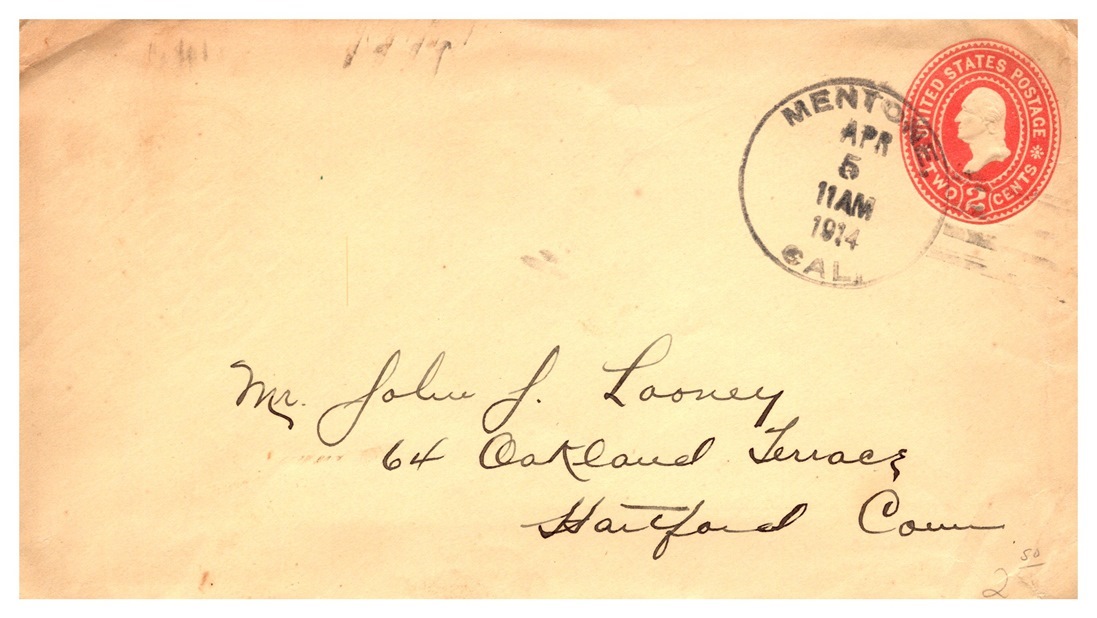 UNITED STATES POSTAGE
TWO 2 CENTS
MENTONE,
APR
5
11 AM
1914
CALI.
Mr. John J. Looney
64 Oakland Terrace
Hartford Conn
2 50